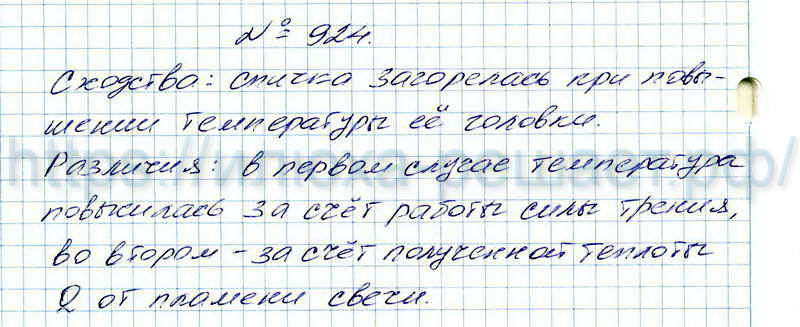 № 924.
Сходства: спичка загорелась при повы-
шении температуры её головки.
Различия: в первом случае температура
повысилась за счёт работы силы трения,
во втором – за счёт полученной теплоты
Q от пламени свечи.